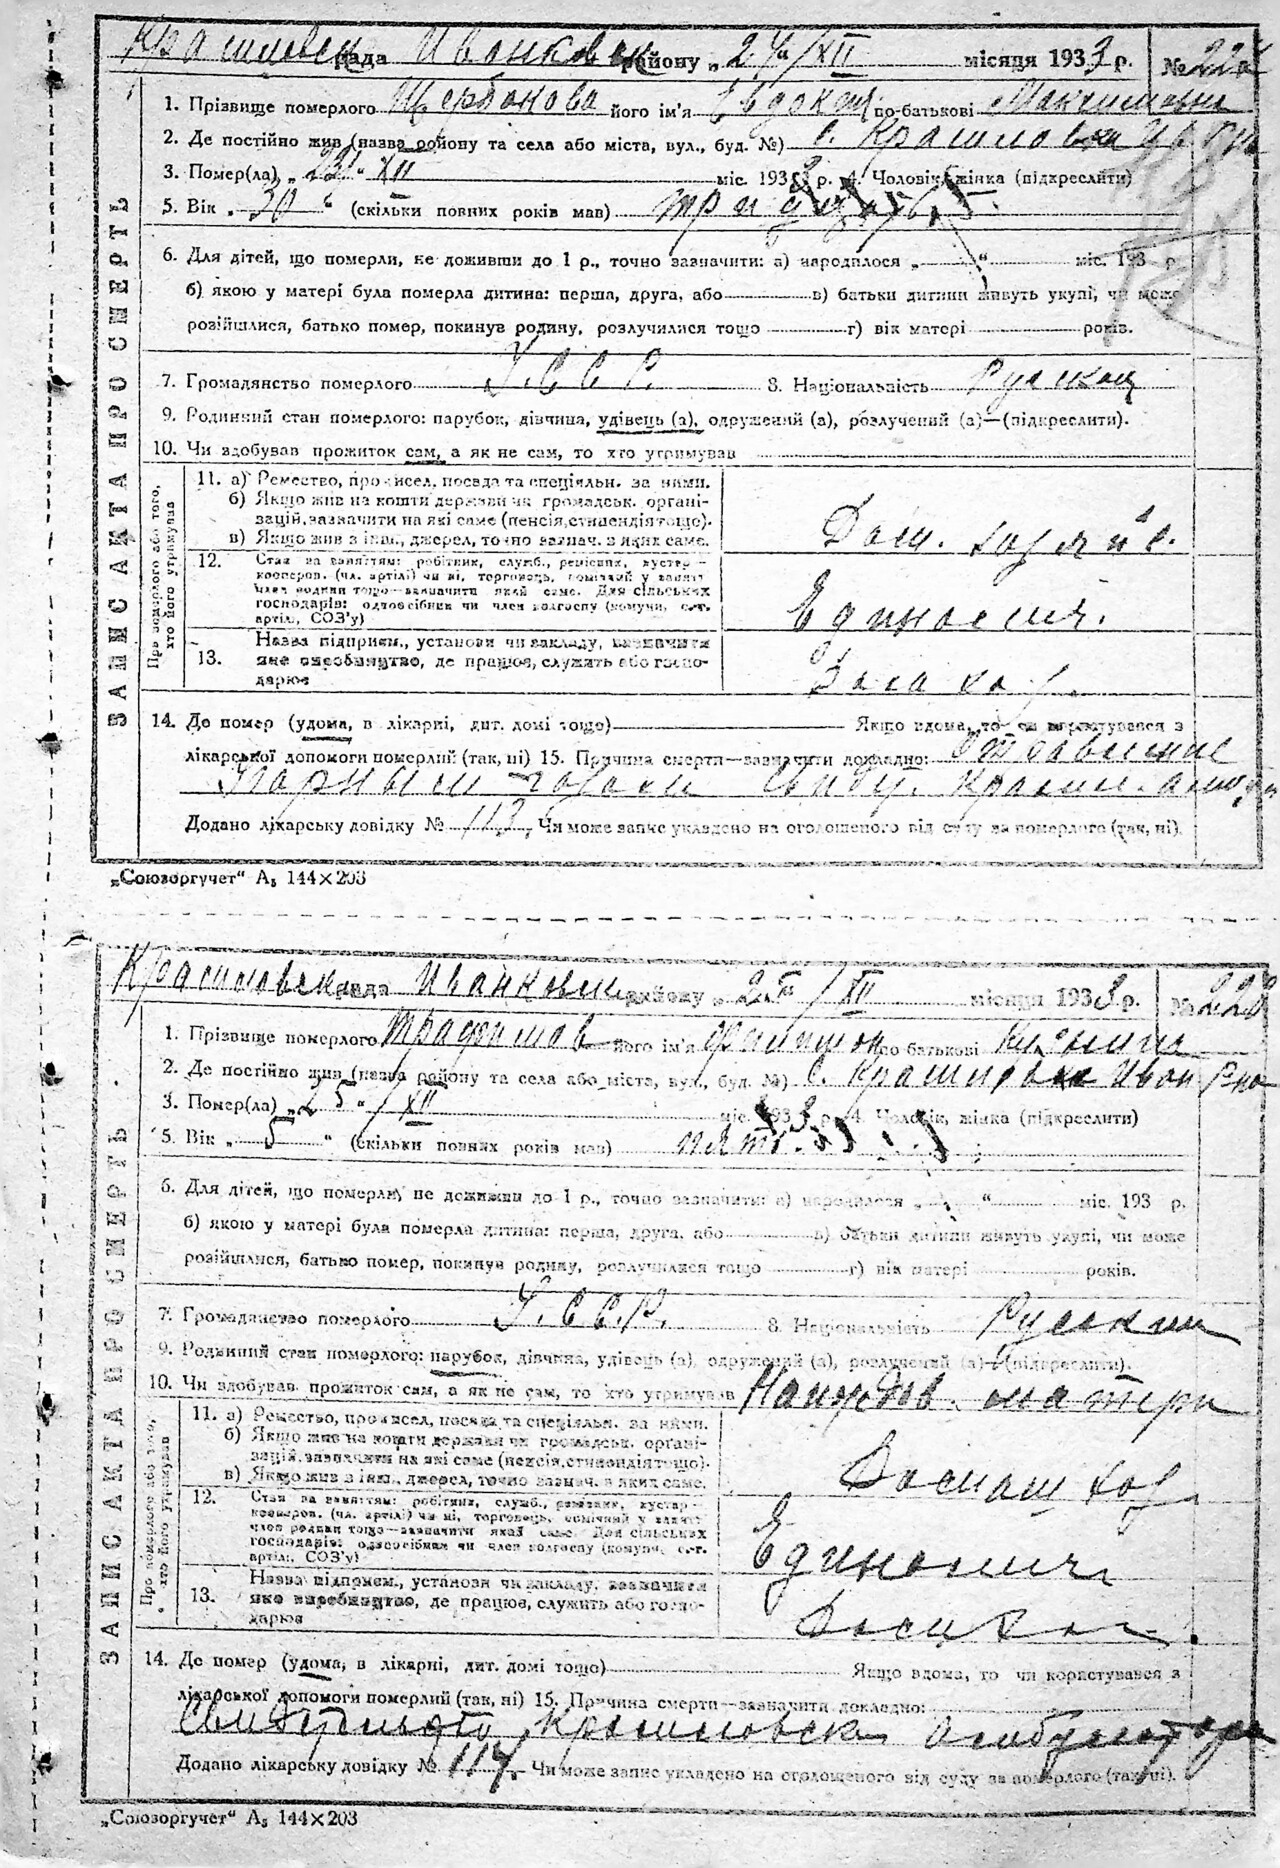 Красиловск рада Иванковск району „ 24/XII місяця 1933 р. №
1. Прізвище померлого Щербакова його ім'я Евдокия по-батькові Максимовна
2. Де постійно жив (назва району та села або міста, вул., буд. №) с. Красиловка
3. Помер(ла) „ 23 “ XII міс. 1933 р. 4. Чоловік, жінка (підкреслити)
5. Вік „ 30 “ (скільки повних років мав) тридцять
6. Для дітей, що померли, не доживши до 1 р., точно зазначити: а) народилося „ “ міс. 193 р.
б) якою у матері була померла дитина: перша, друга, або в) батьки дитини живуть укупі, чи може
розійшлися, батько помер, покинув родину, розлучилися тощо г) вік матері років.
7. Громадянство померлого У.С.С.Р. 8. Національність Руская
9. Родинний стан померлого: парубок, дівчина, удівець (а), одружений (а), розлучений (а)—(підкреслити).
10. Чи здобував прожиток сам, а як не сам, то хто утримував
ЗАПИС АКТА ПРО СМЕРТЬ
Про померлого або того, хто його утримував
11. а) Ремество, промисел, посада та спеціяльн. за ними.
б) Якщо жив на кошти держави чи громадськ. органі-
зацій, зазначити на які саме (пенсія, стипендія тощо).
в) Якщо жив з інш., джерел, точно зазнач. з яких саме.
Дом. хозяйс.
12. Стан за заняттям: робітник, служб., ремісник, кустар—
кооперов. (чл. артілі) чи ні, торговець, помічний у занятт.
член родини тощо—зазначити який саме. Для сільських
господарів: одноосібник чи член колгоспу (комуни, с.-г.
артіл., СОЗ'у)
Единолич.
13. Назва підприєм., установи чи закладу, зазначити
яке виробництво, де працює, служить або госпо-
дарює
14. Де помер (удома, в лікарні, дит. домі тощо) Якщо вдома, то чи користувався з
лікарської допомоги померлий (так, ні) 15. Причина смерти—зазначити докладно: Отравление
Додано лікарську довідку № 113. Чи може запис укладено на оголошеного від суду за померлого (так, ні).
„Союзоргучет“ А₅ 144×203
Красиловск рада Иванковск району „ 25 “ /XII місяця 1933 р. №
1. Прізвище померлого Трафимов його ім'я по-батькові
2. Де постійно жив (назва району та села або міста, вул., буд. №) с. Красиловка Иван Р-на
3. Помер(ла) „ 25 “ /XII міс. 1933 р. 4. Чоловік, жінка (підкреслити)
5. Вік „ 5 “ (скільки повних років мав) пять
6. Для дітей, що померли, не доживши до 1 р., точно зазначити: а) народилося „ “ міс. 193 р.
б) якою у матері була померла дитина: перша, друга, або в) батьки дитини живуть укупі, чи може
розійшлися, батько помер, покинув родину, розлучилися тощо г) вік матері років.
7. Громадянство померлого У.С.С.Р. 8. Національність Руский
9. Родинний стан померлого: парубок, дівчина, удівець (а), одружений (а), розлучений (а)—(підкреслити).
10. Чи здобував прожиток сам, а як не сам, то хто утримував матери
ЗАПИС АКТА ПРО СМЕРТЬ
Про померлого або того, хто його утримував
11. а) Ремество, промисел, посада та спеціяльн. за ними.
б) Якщо жив на кошти держави чи громадськ. органі-
зацій, зазначити на які саме (пенсія, стипендія тощо).
в) Якщо жив з інш., джерел, точно зазнач. з яких саме.
Домаш хоз
12. Стан за заняттям: робітник, служб., ремісник, кустар—
кооперов. (чл. артілі) чи ні, торговець, помічний у занятт.
член родини тощо—зазначити який саме. Для сільських
господарів: одноосібник чи член колгоспу (комуни, с.-г.
артіл., СОЗ'у)
Единолич
13. Назва підприєм., установи чи закладу, зазначити
яке виробництво, де працює, служить або госпо-
дарює
14. Де помер (удома, в лікарні, дит. домі тощо) Якщо вдома, то чи користувався з
лікарської допомоги померлий (так, ні) 15. Причина смерти—зазначити докладно:
Красиловск амбулатори
Додано лікарську довідку № 114. Чи може запис укладено на оголошеного від суду за померлого (так, ні).
„Союзоргучет“ А₅ 144×203